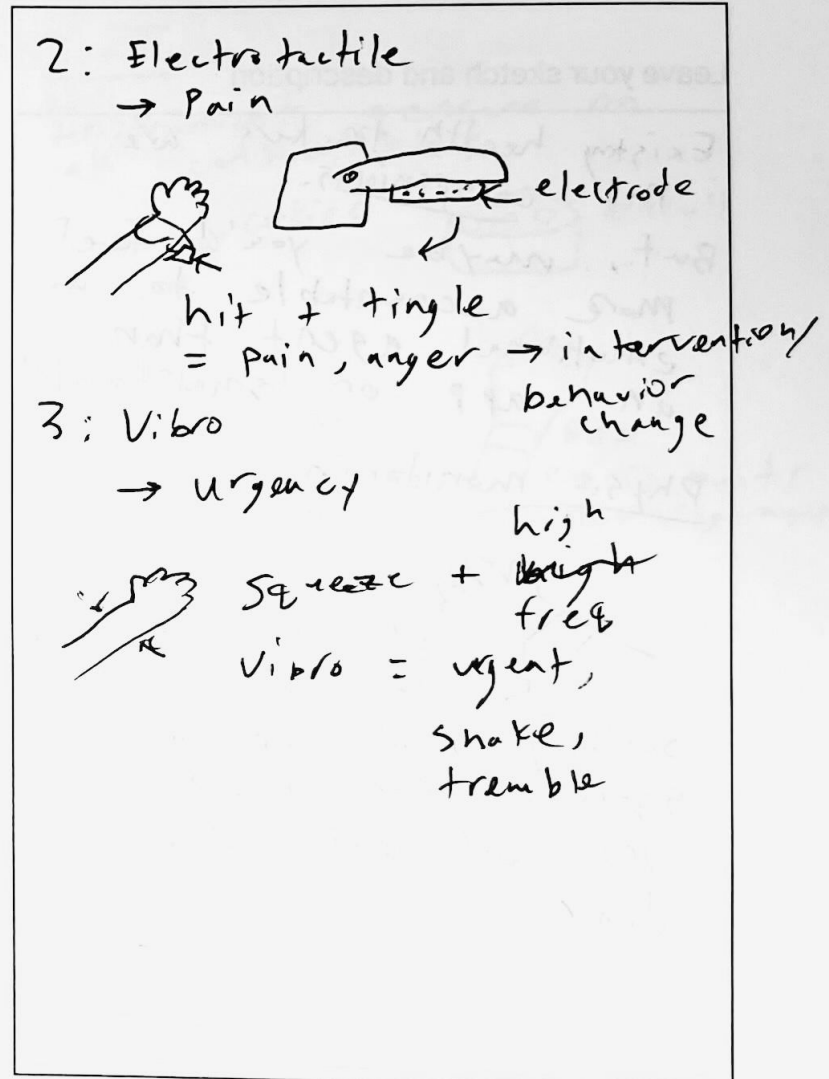 2: Electrotactile
→ Pain
electrode
hit + tingle
= pain, anger → intervention/
behavior
change
3: Vibro
→ urgency
high
Squeeze +
freq
Vibro = urgent,
shake,
tremble